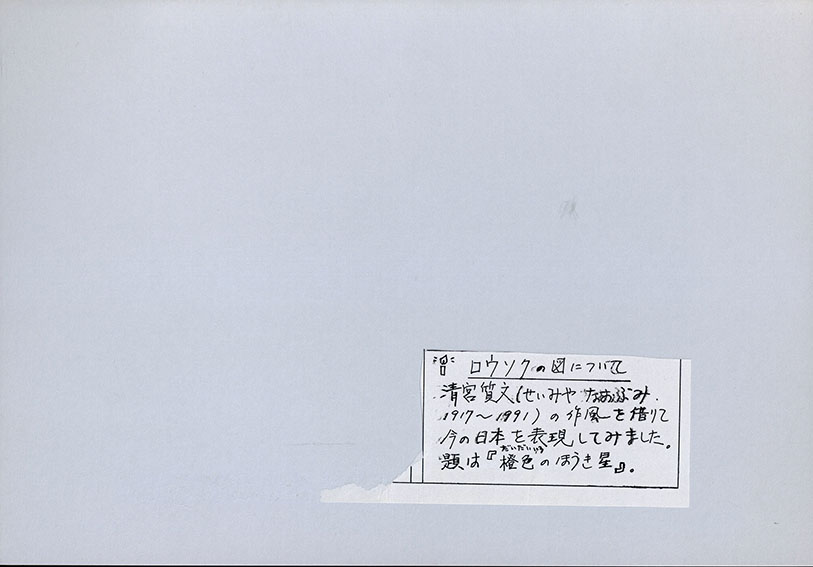 ロウソクの図について
清宮質文(せいみや なおぶみ
1917〜1991)の作風を借りて
今の日本を表現してみました。
題は『橙色のほうき星』。
だいだいいろ